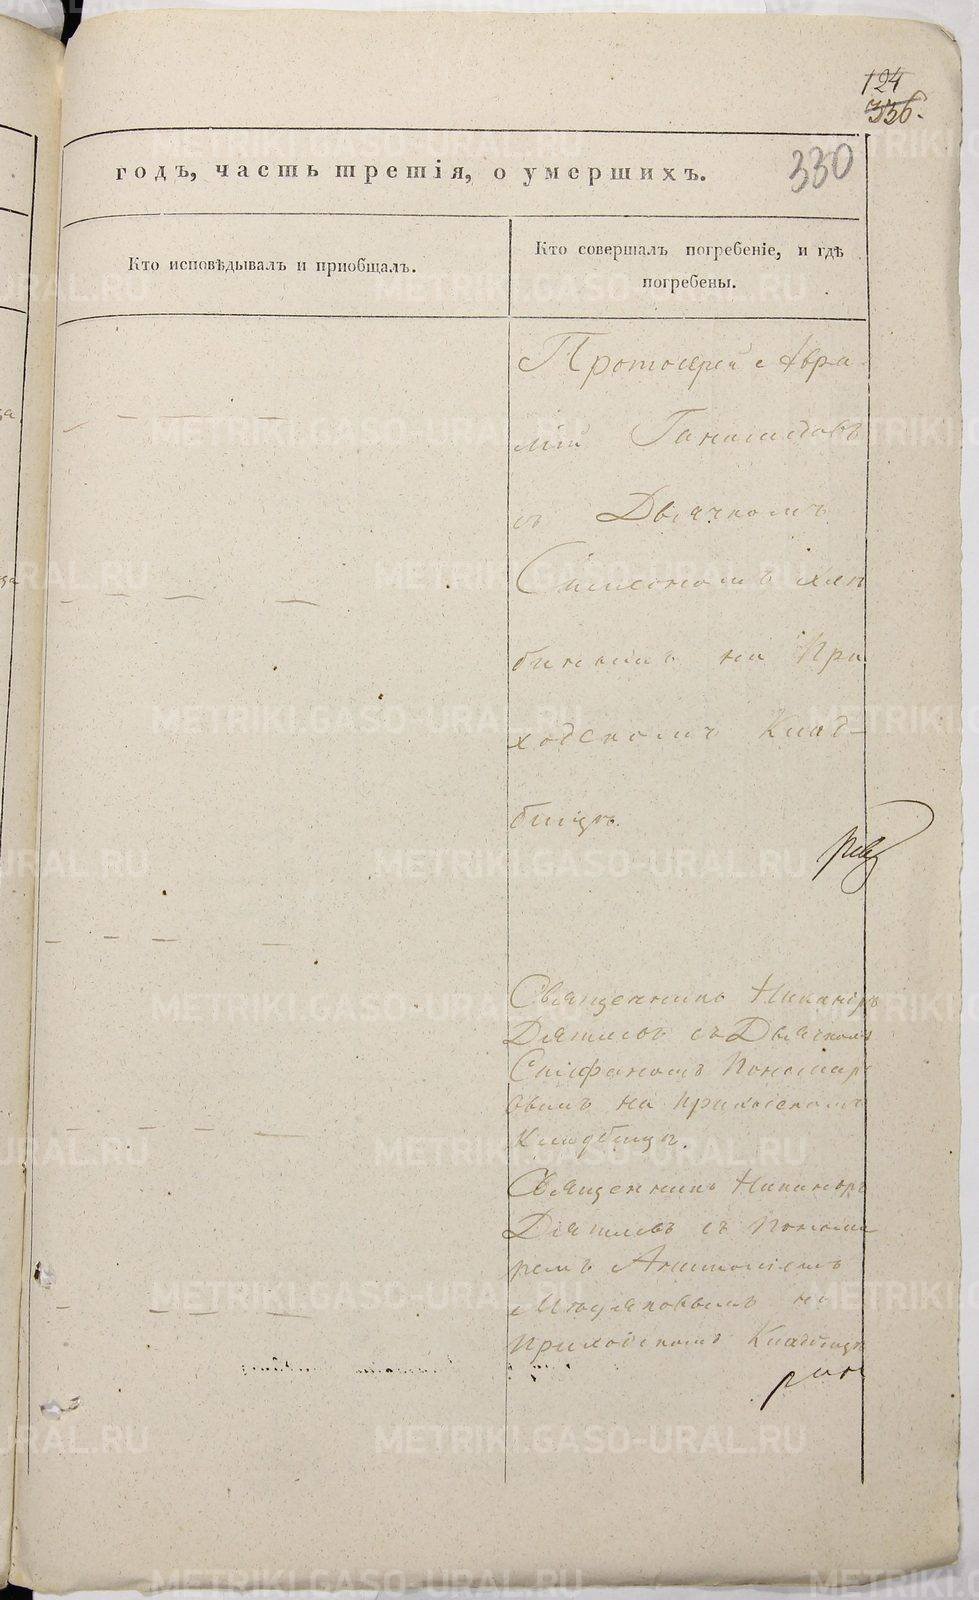 124
336.
330
годъ, часть третія, о умершихъ.
Кто исповѣдывалъ и пріобщалъ.
Кто совершалъ погребеніе, и гдѣ
погребены.
Протоіерей Авра
мій
съ Дьячкомъ
Симеономъ Хлѣ
бинымъ на При
ходскомъ Клад-
бищѣ.
Священникъ Никаноръ
Дягилевъ съ Дьячкомъ
Стефаномъ Пономаре
вымъ на приходскомъ
Кладбищѣ.
Священникъ Никаноръ
Дягилевъ съ Понома
ремъ
на
приходскомъ Кладбищѣ
METRIKI.GASO-URAL.RU